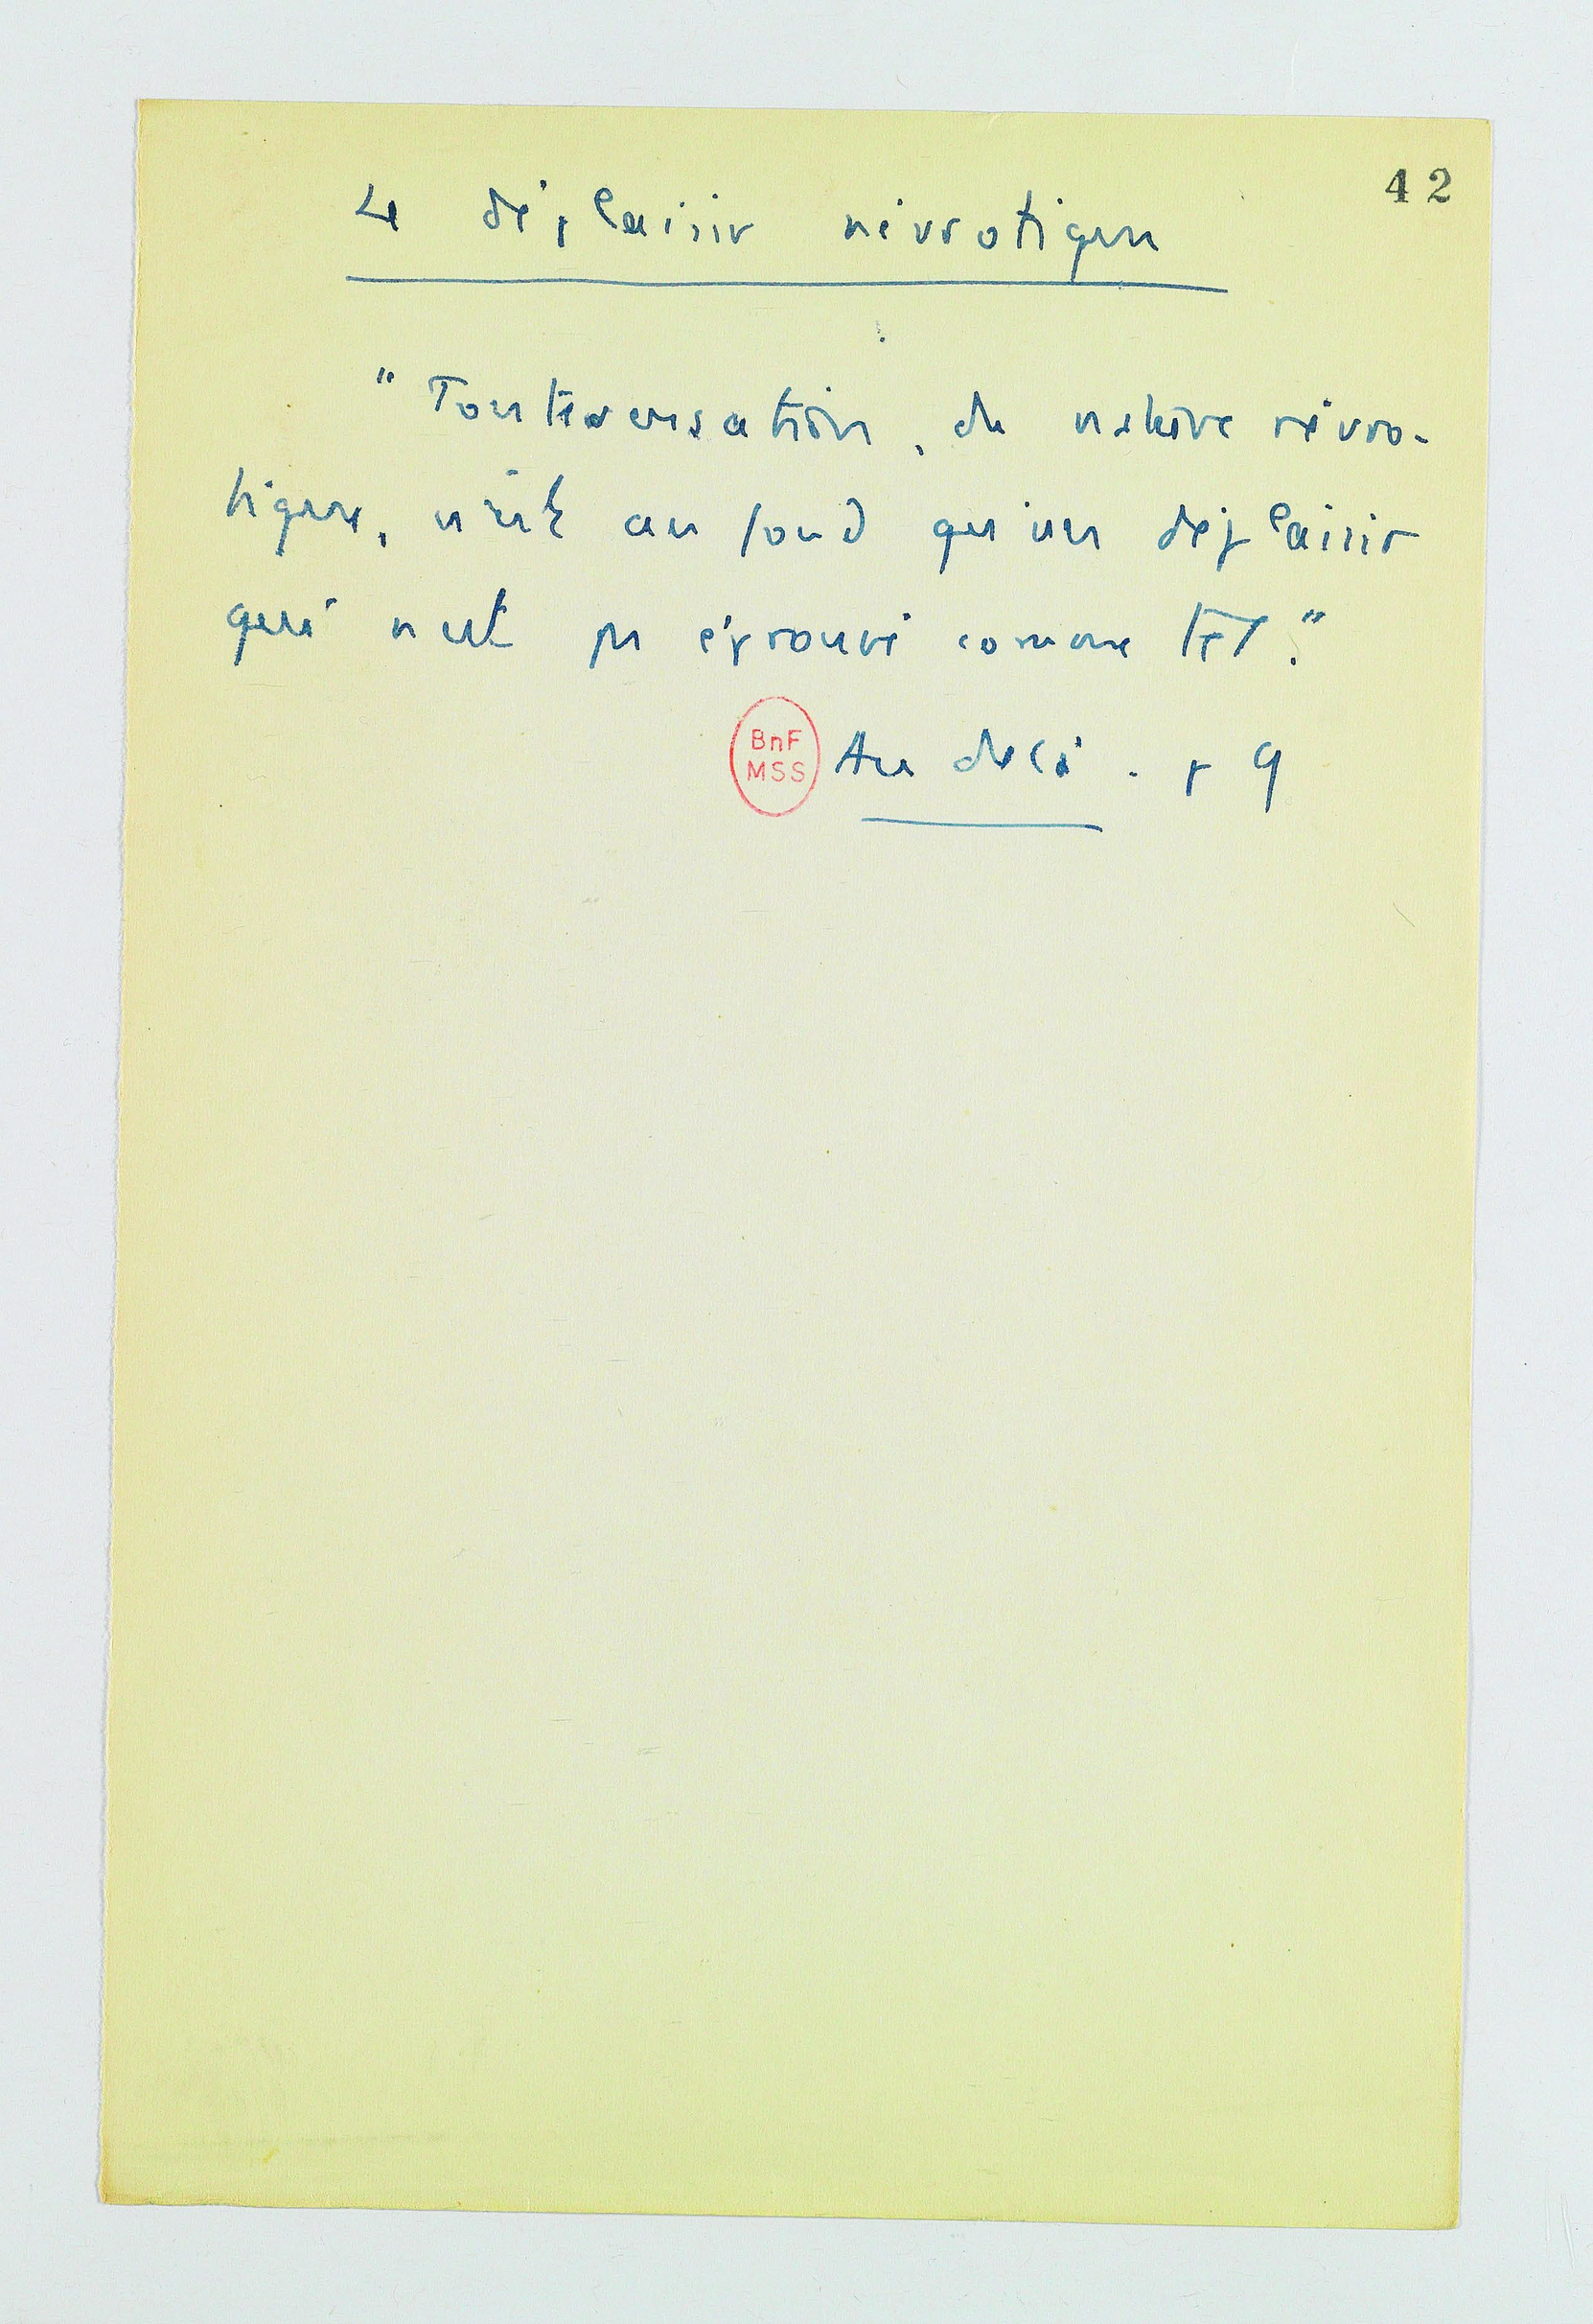 42
Le déplaisir névrotique
"Toute sensation, de nature névro-
tique, n'est au fond qu'un déplaisir
qui n'est pas éprouvé comme tel."
BnF
MSS
Au delà. p 9